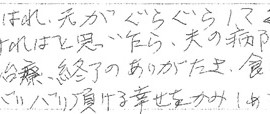 はれ、元がぐらぐらして
ければと思ったら、夫の病
治療、終了のありがたさ、食
バリバリ頂ける幸せをかみしめ